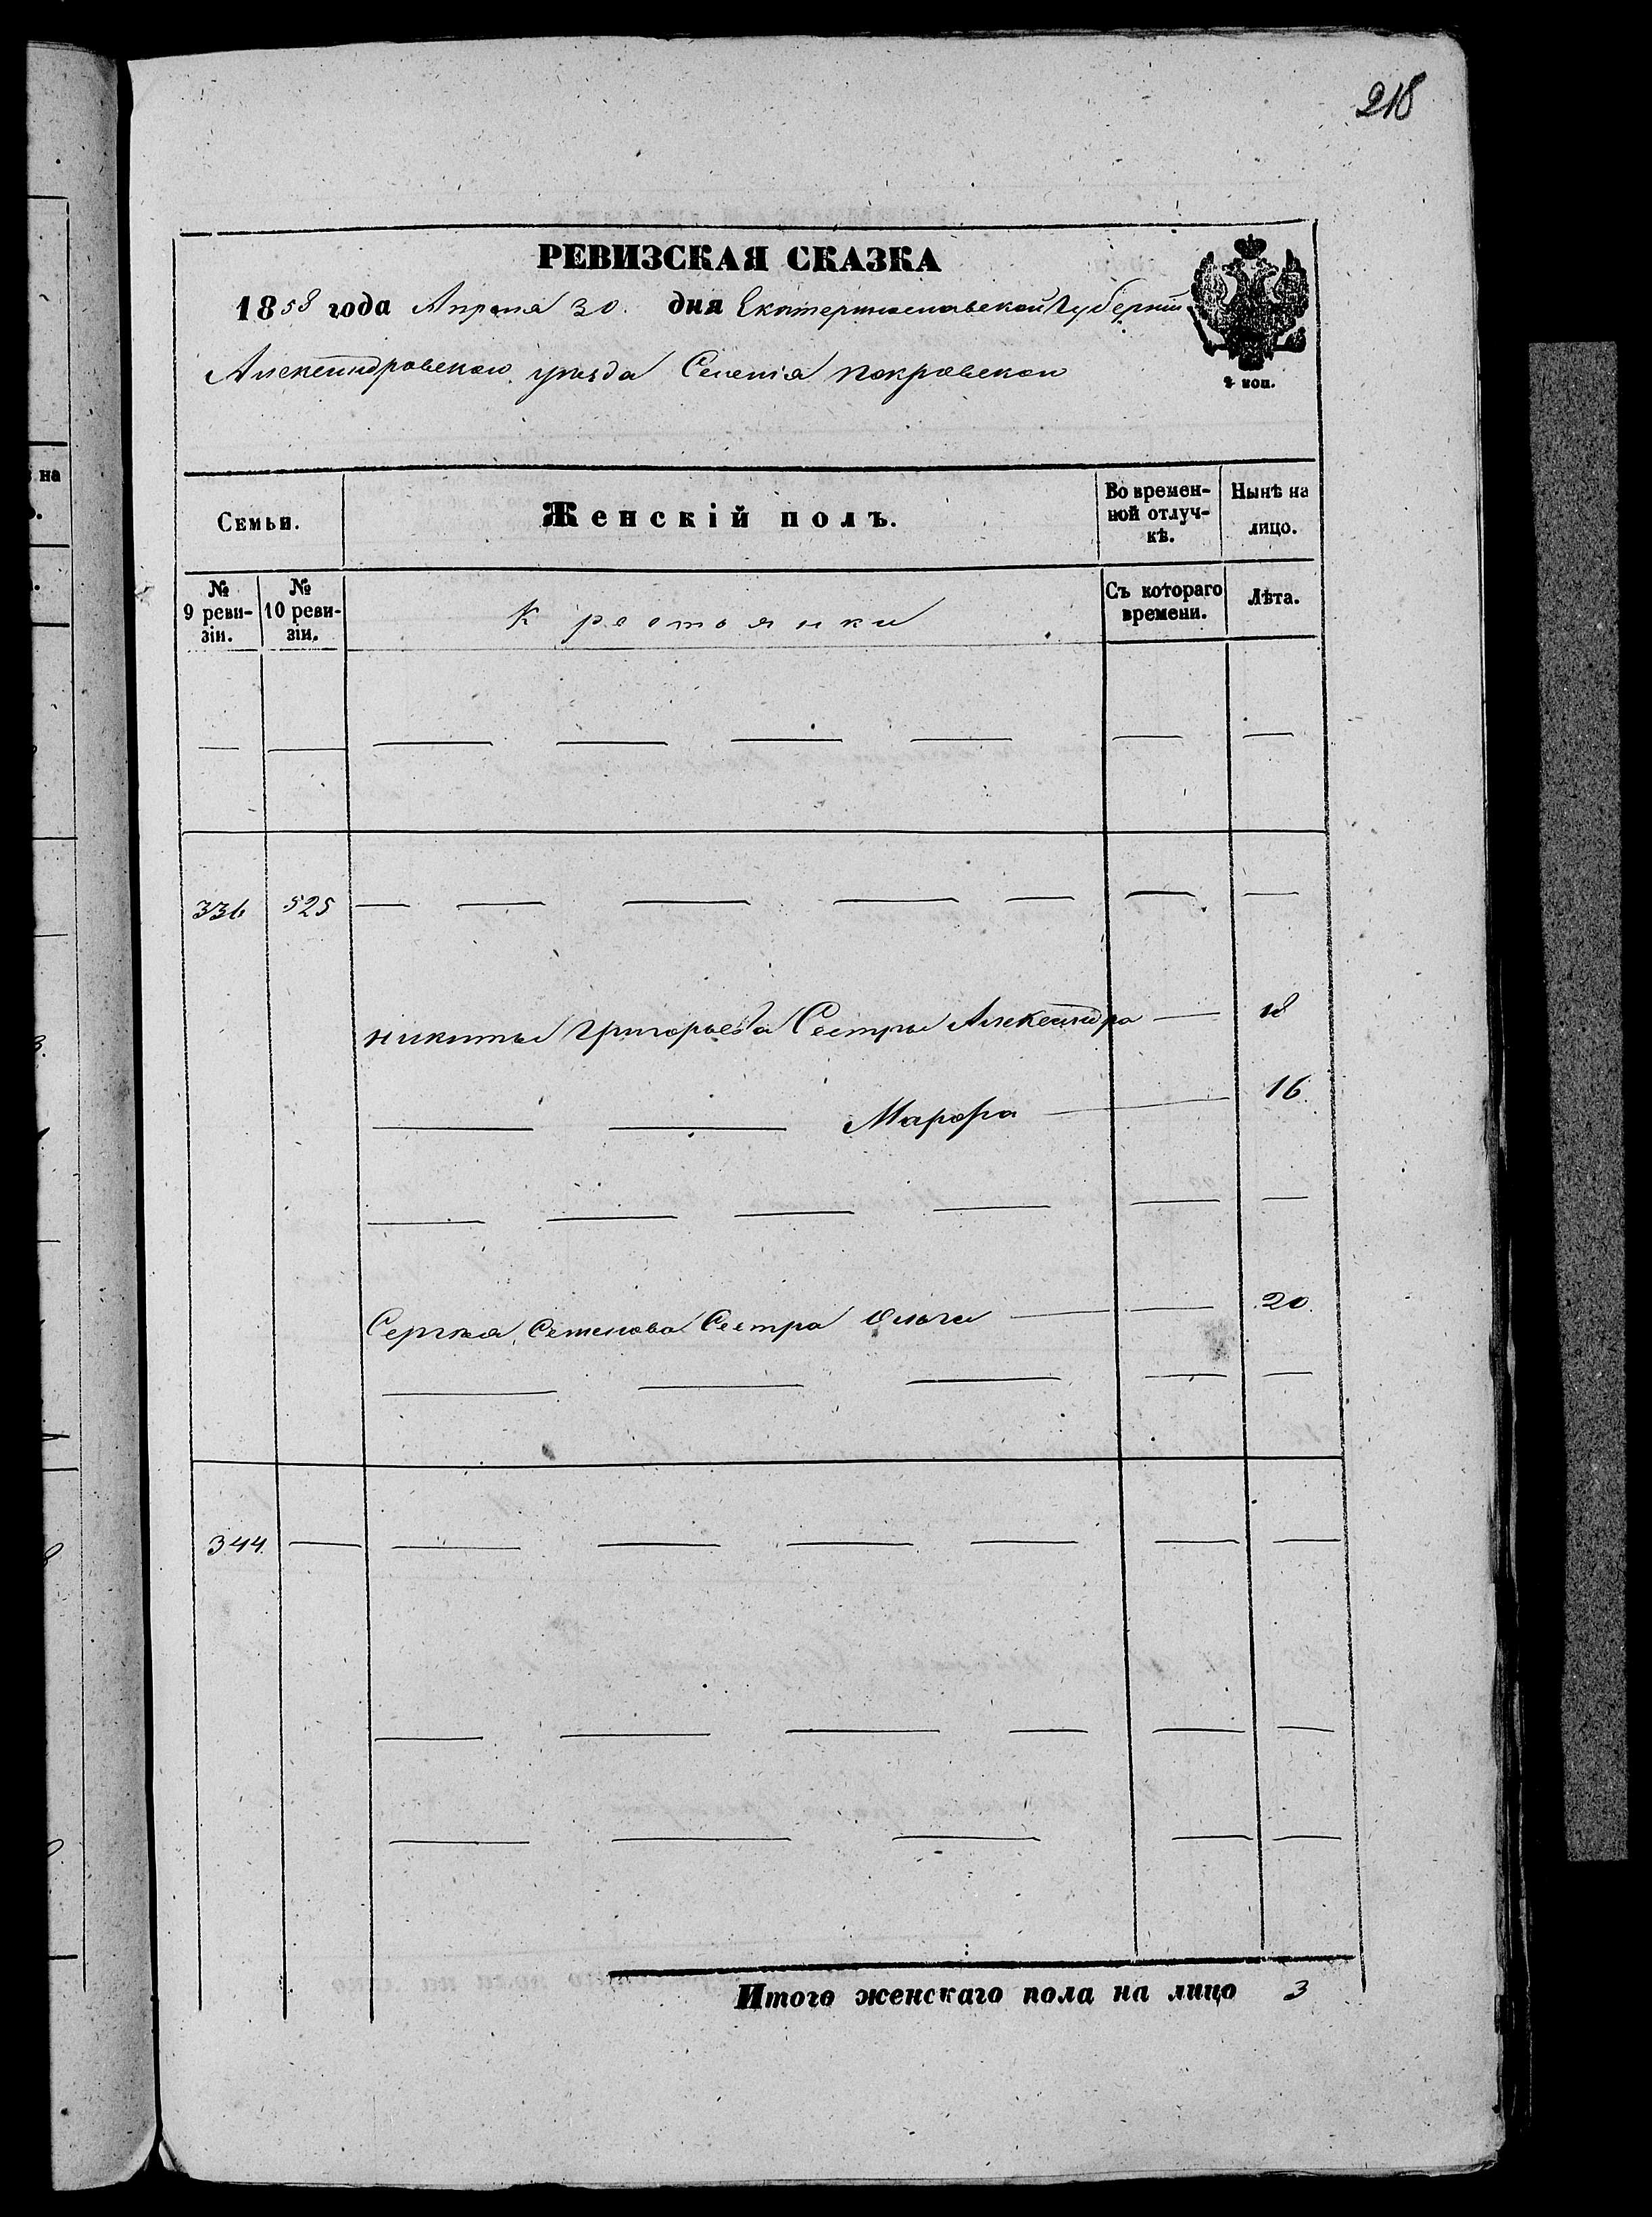 218
РЕВИЗСКАЯ СКАЗКА
1858 года Апреля 30. дня Екатеринославской Губерніи
Александровскаго уѣзда Селенія Покровскаго
2 коп.
Семьи. Женскій полъ. Во временной отлучкѣ. Нынѣ на лицо.
№ 9 ревизіи. № 10 ревизіи. Крестьянки Съ котораго времени. Лѣта.
— — — — — — — —
336 525 — — — — — — —
Никиты Григорьева Сестры Александра — 18
— — Марѳра — 16.
— — — — — —
Сергѣя Семенова Сестра Ольга — — 20.
— — — — —
344. — — — — — — —
— — — — — —
— — — — —
Итого женскаго пола на лицо 3
на